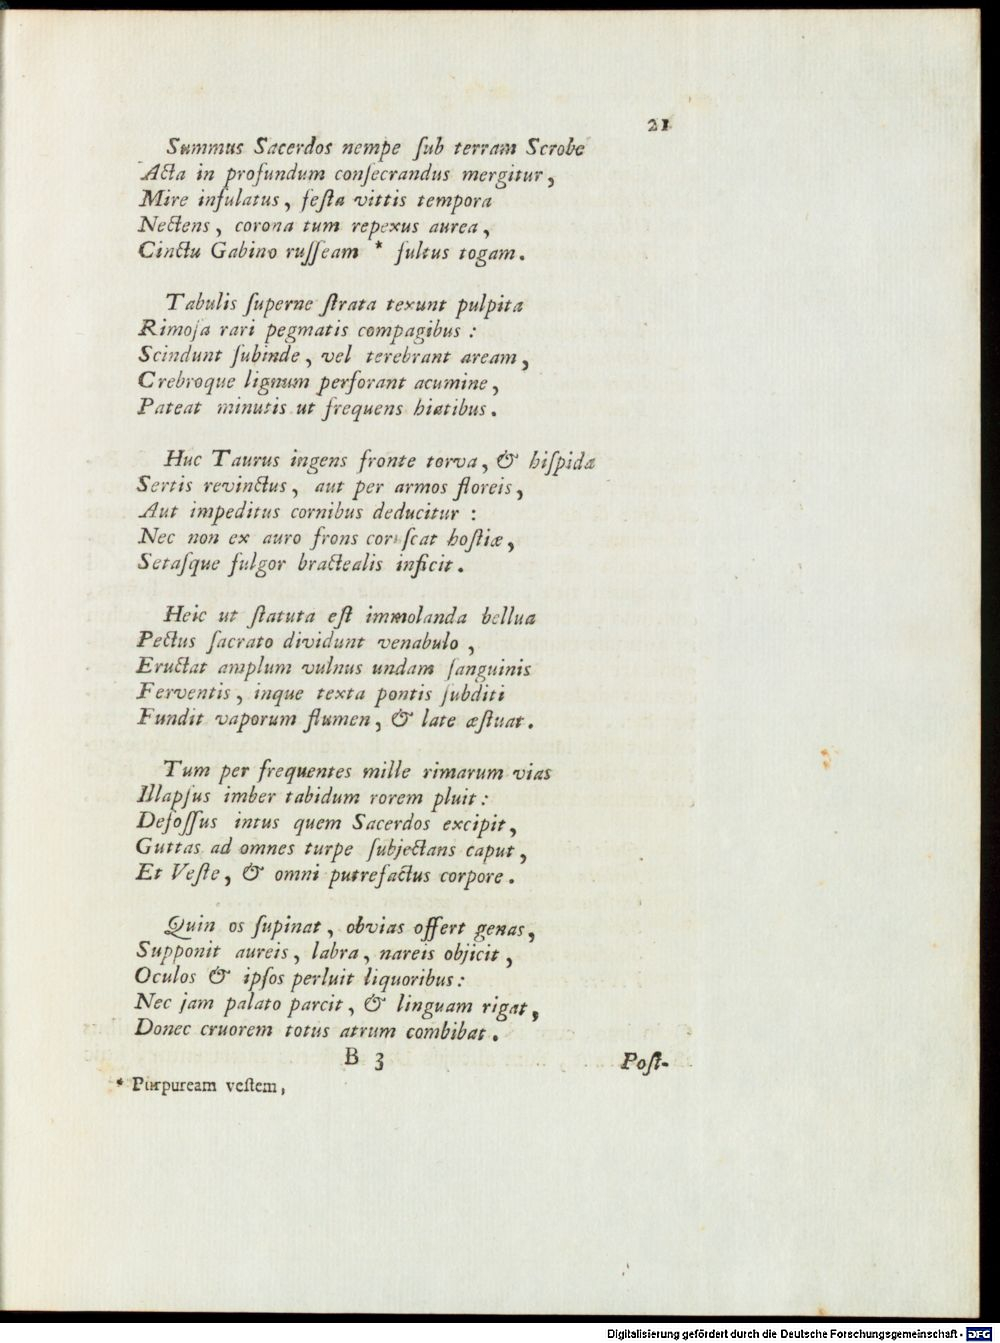 21
Summus Sacerdos nempe ſub terram Scrobe
Acta in profundum conſecrandus mergitur,
Mire infulatus, feſta vittis tempora
Nectens, corona tum repexus aurea,
Cinctu Gabino ruſſeam * fultus togam.
Tabulis ſuperne ſtrata texunt pulpita
Rimoſa rari pegmatis compagibus:
Scindunt ſubinde, vel terebrant aream,
Crebroque lignum perforant acumine,
Pateat minutis ut frequens hiatibus.
Huc Taurus ingens fronte torva, & hiſpida
Sertis revinctus, aut per armos floreis,
Aut impeditus cornibus deducitur:
Nec non ex auro frons coruſcat hoſtiæ,
Setaſque fulgor bractealis inficit.
Heic ut ſtatuta eſt immolanda bellua
Pectus ſacrato dividunt venabulo,
Eructat amplum vulnus undam ſanguinis
Ferventis, inque texta pontis ſubditi
Fundit vaporum flumen, & late æſtuat.
Tum per frequentes mille rimarum vias
Illapſus imber tabidum rorem pluit:
Defoſſus intus quem Sacerdos excipit,
Guttas ad omnes turpe ſubjectans caput,
Et Veſte, & omni putrefactus corpore.
Quin os ſupinat, obvias offert genas,
Supponit aureis, labra, nareis objicit,
Oculos & ipſos perluit liquoribus:
Nec jam palato parcit, & linguam rigat,
Donec cruorem totus atrum combibat.
B 3 Poſt-
* Purpuream veſtem,
Digitalisierung gefördert durch die Deutsche Forschungsgemeinschaft - DFG